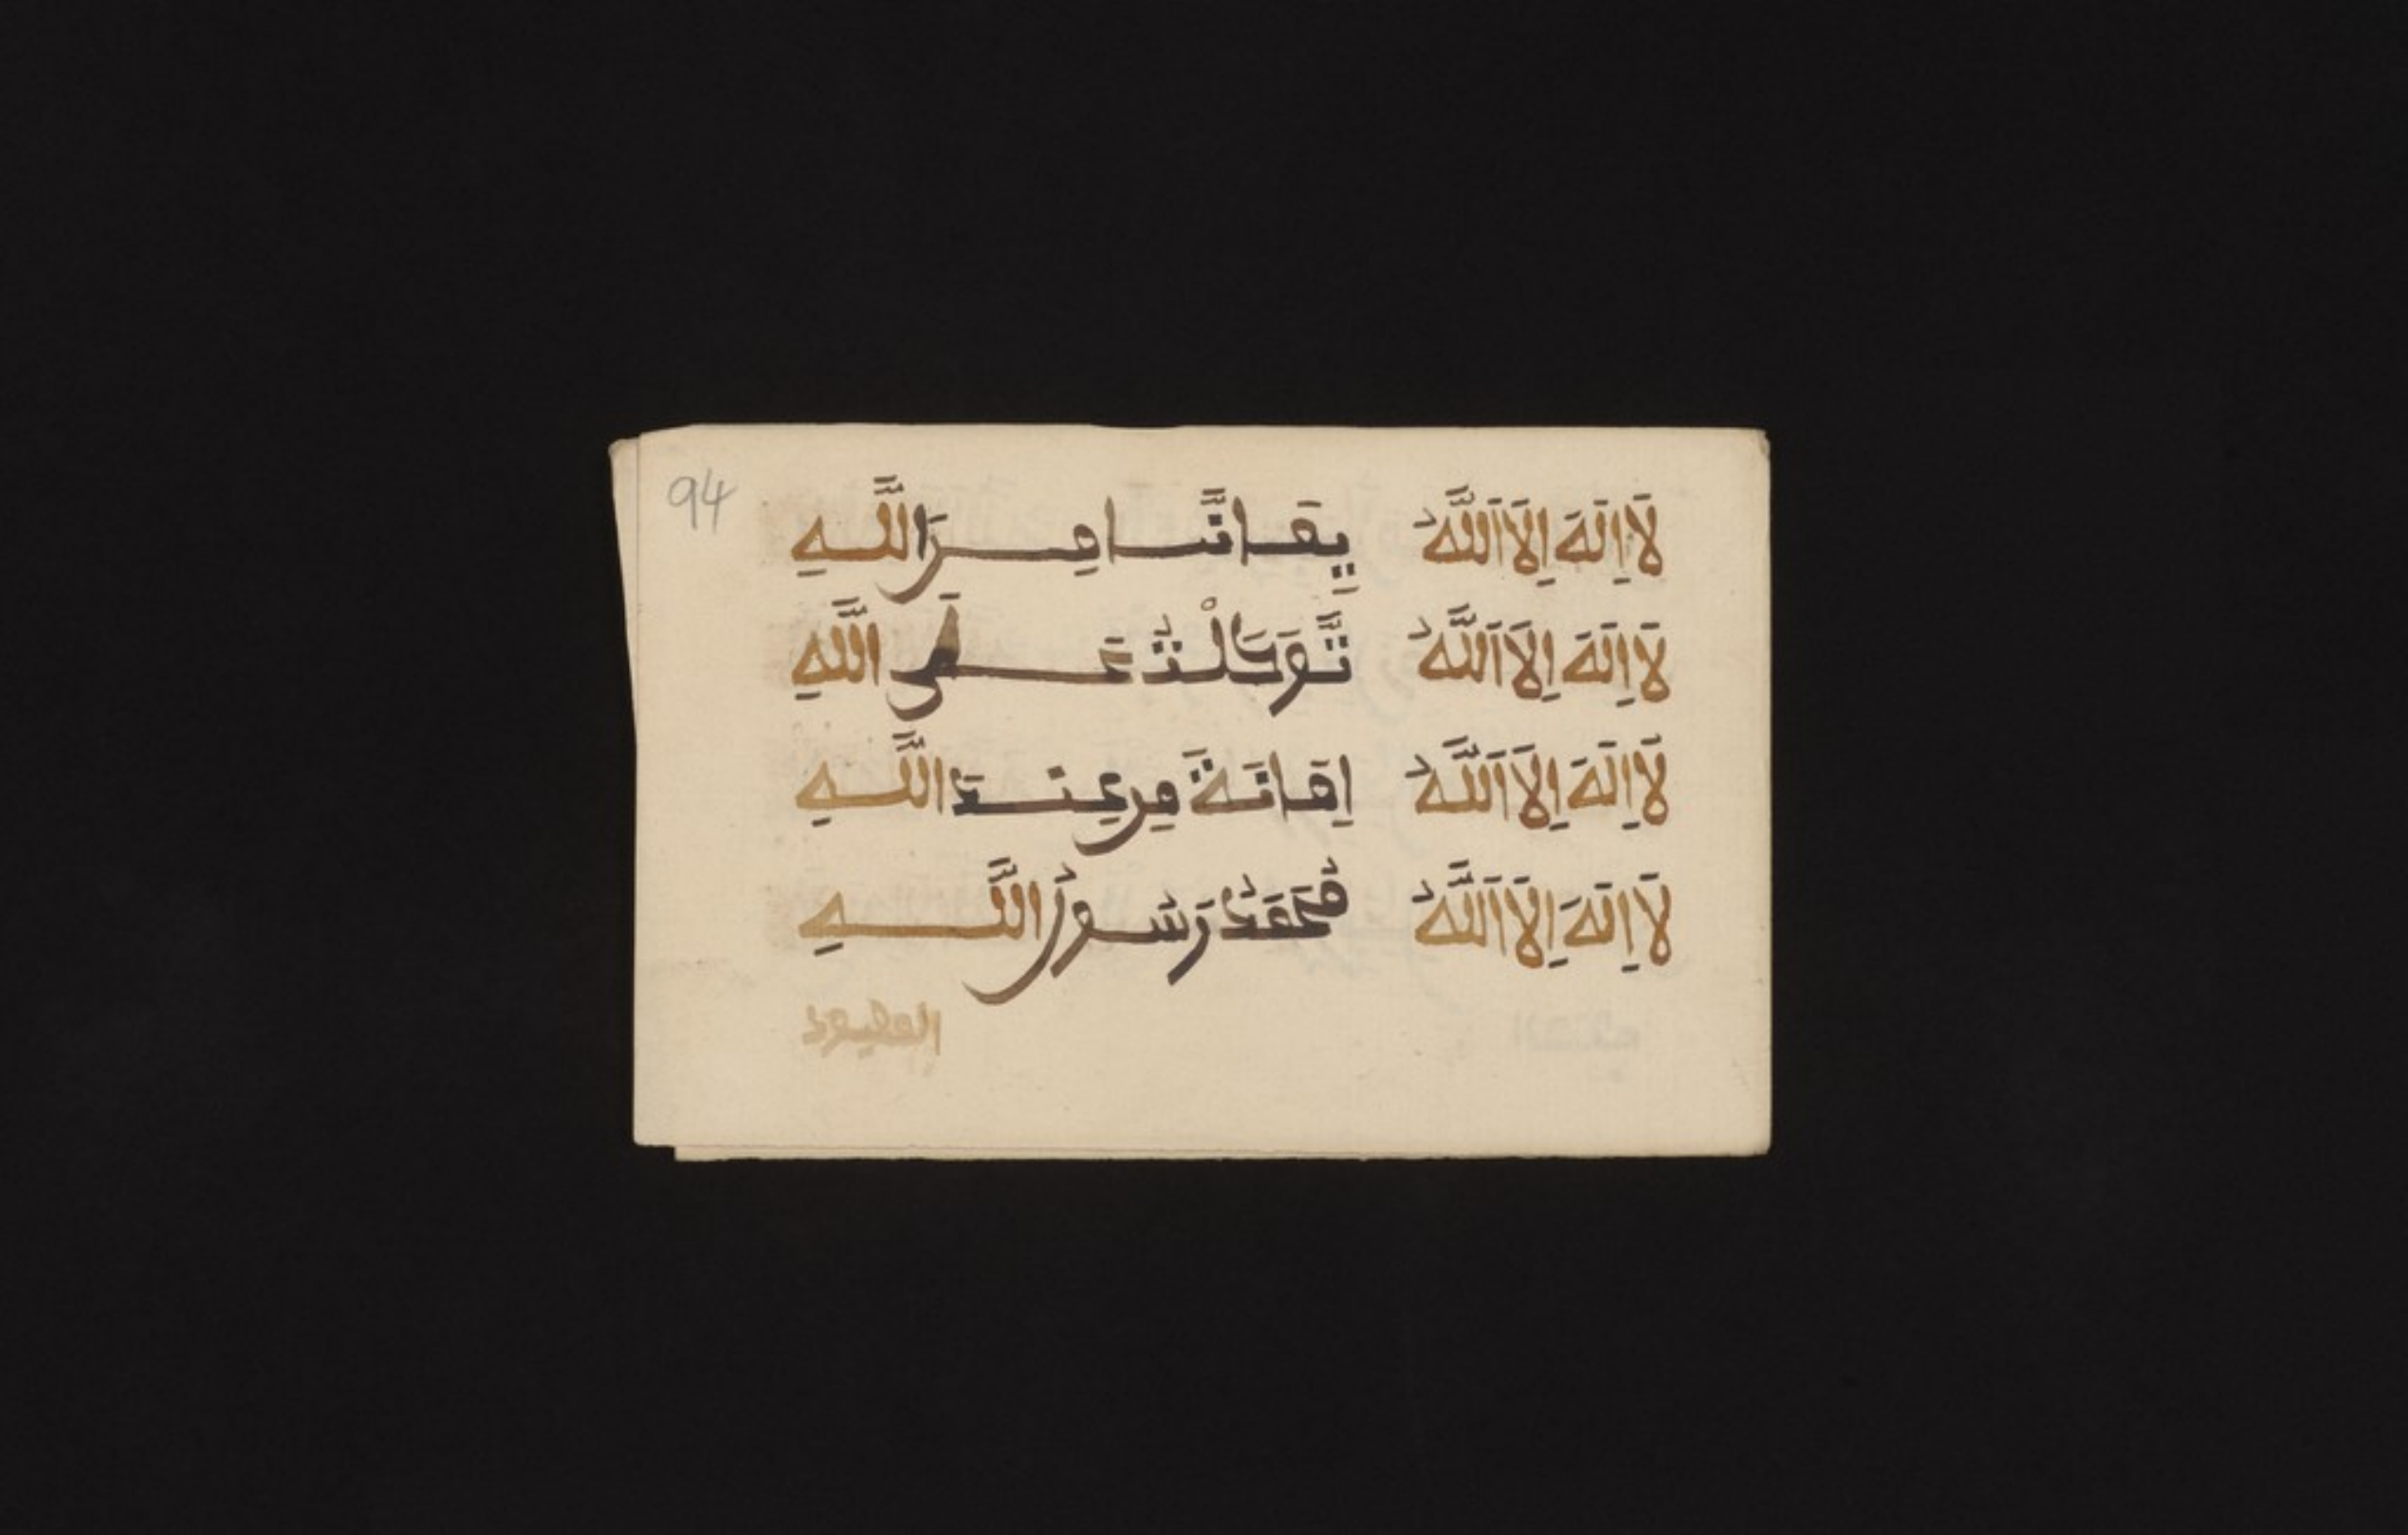 94
لَا اِلَهَ اِلَّا اَللَّهُ يِقَانًا مِرَ اللَّهِ
لَا اِلَهَ اِلَّا اَللَّهُ تَّوَكَلْتُ عَلَى اللَّهِ
لَا اِلَهَ اِلَّا اَللَّهُ اِمَانَةً مِن عِندَ اللَّهِ
لَا اِلَهَ اِلَّا اَللَّهُ مُحَمَدُ رَسُولُ اللَّهِ